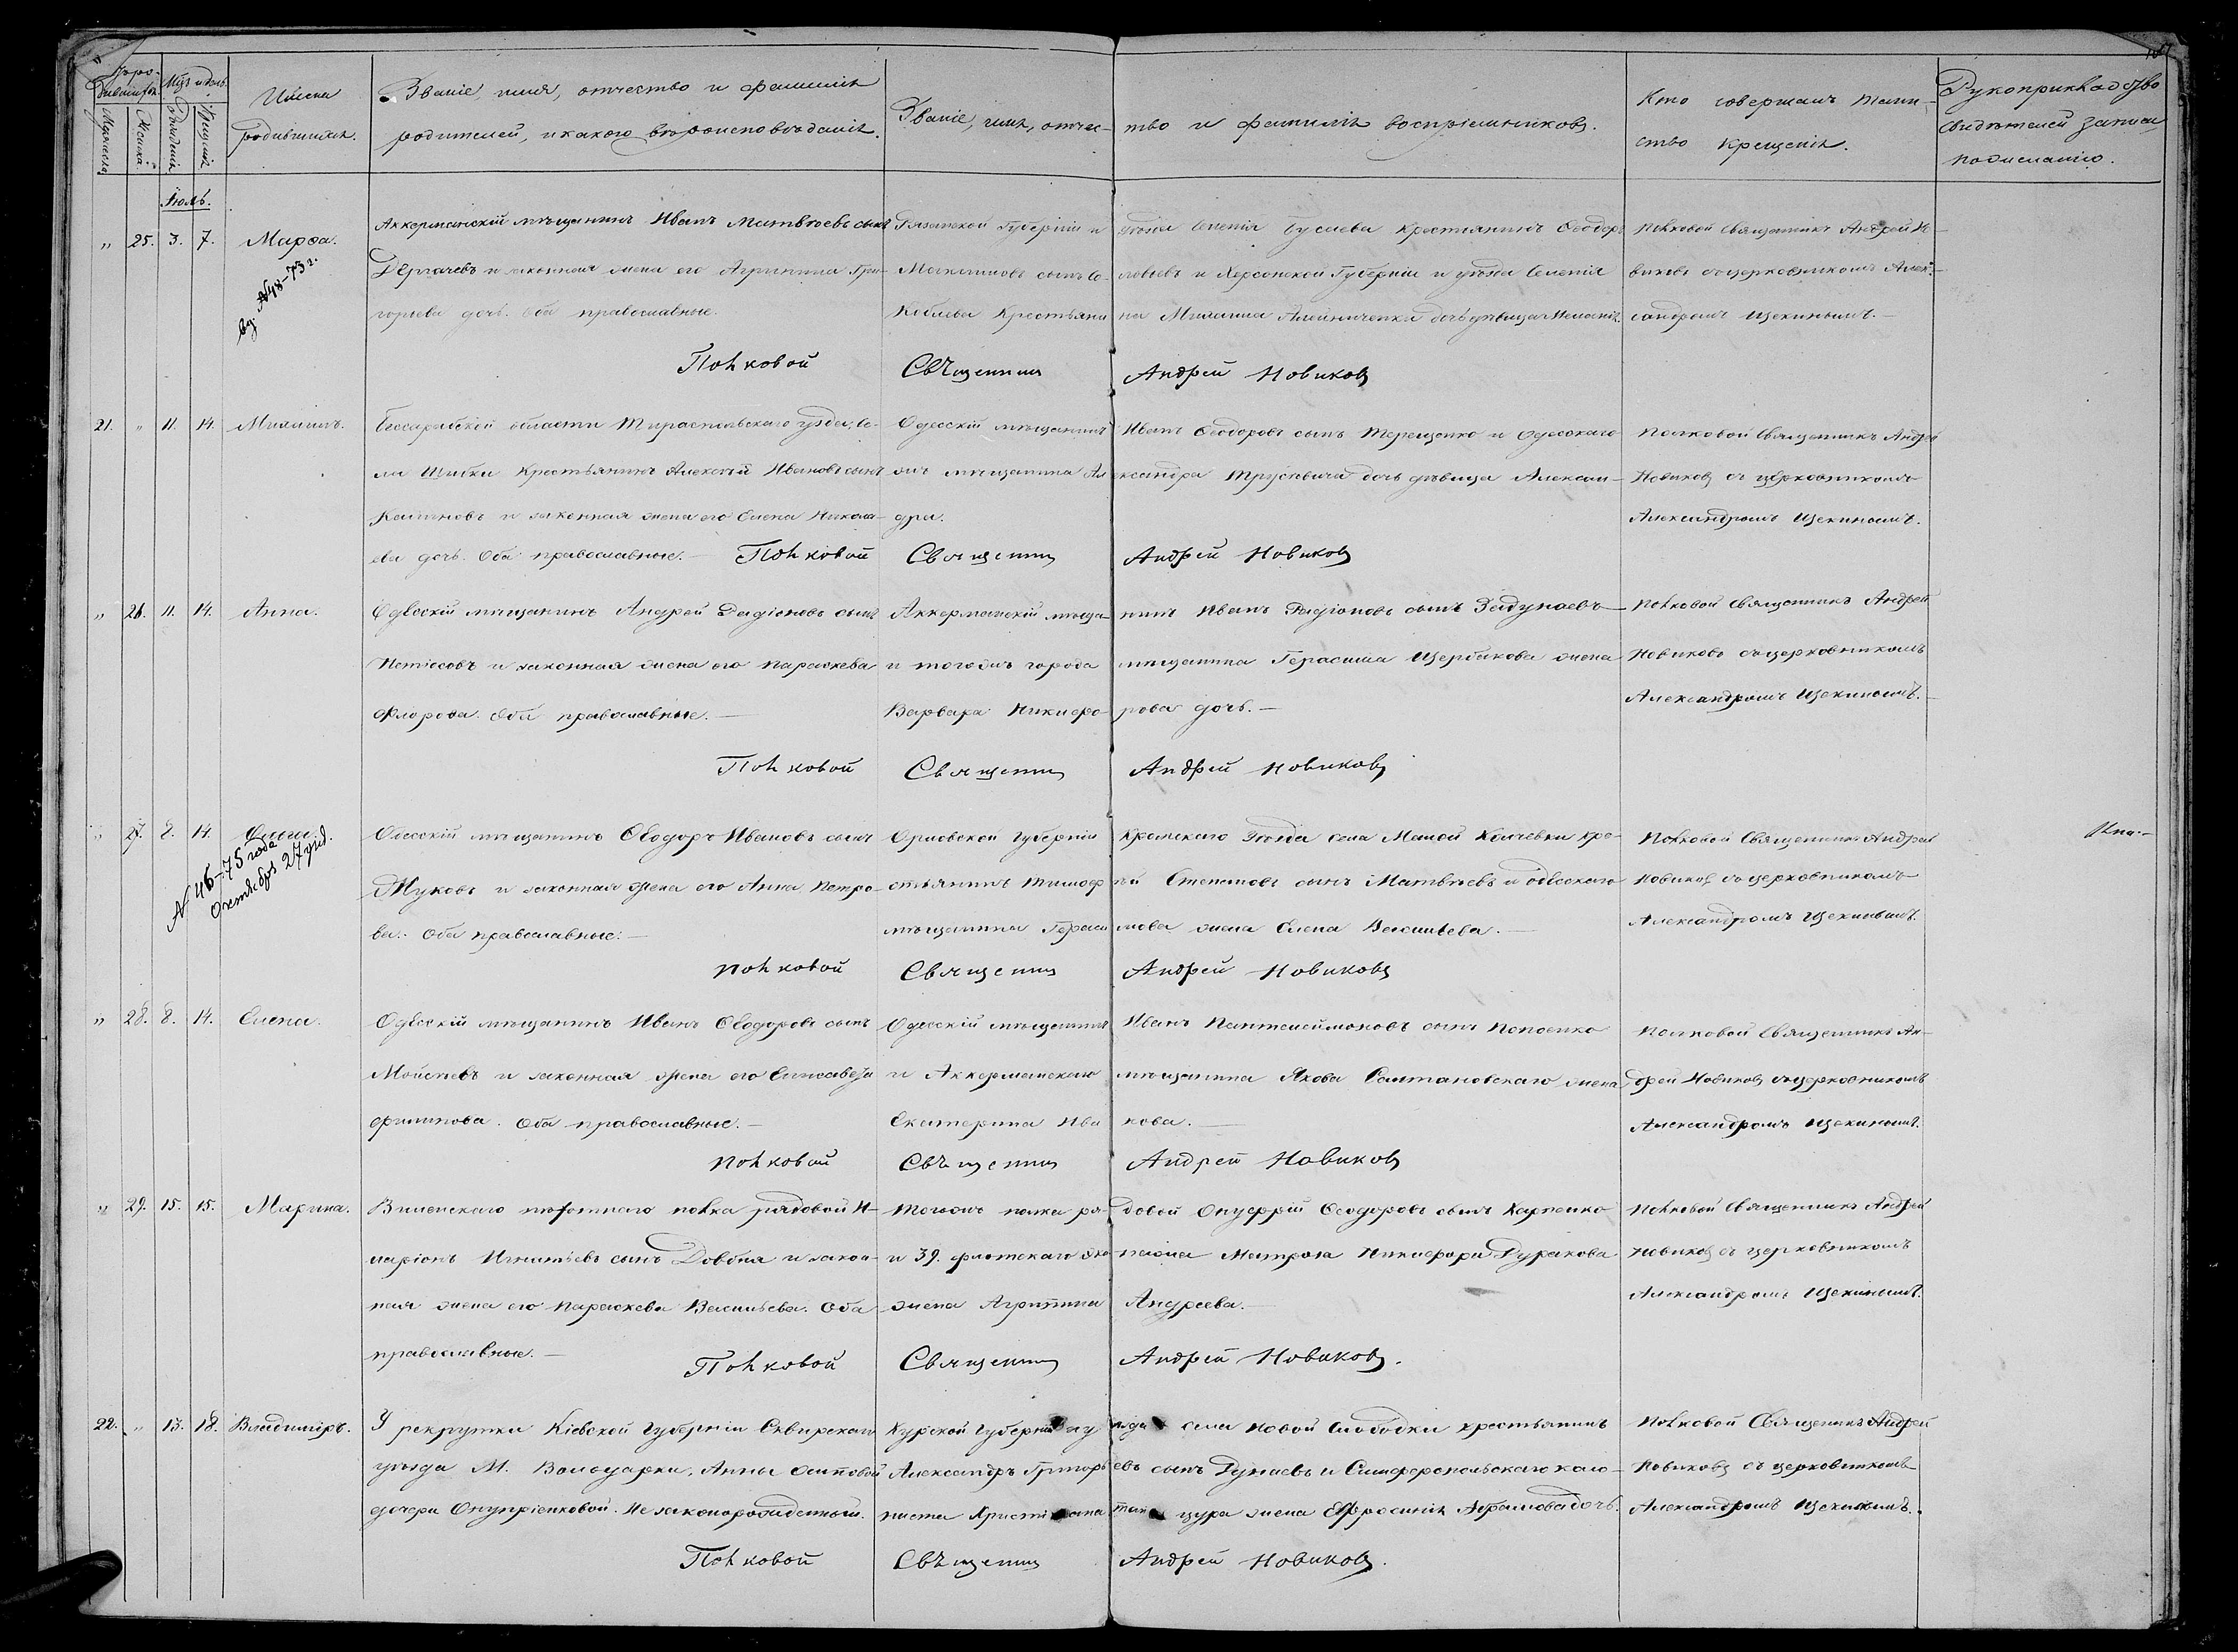 Мѣс. и день
Имена
родившихся.
Званіе, имя, отчество и фамилія
родителей, и какого вѣроисповѣданія.
Званіе, имя, отчес-
тво и фамилія воспріемниковъ.
Кто совершалъ таин-
ство крещенія.
Рукоприкладство
свидѣтелей записи
по желанію.
Мужеска
Женска
Рожденія
Крещенія
Іюль.
" 25. 3. 7. Марѳа.
N 48-73 г.
Аккерманскій мѣщанинъ Иванъ Матвѣевъ сынъ
Дергачевъ и законная жена его Агрипина Гри-
горьева дочь. Оба православные.
Рязанской Губерніи и
уѣзда Селенія Гусаева крестьянинъ Ѳеодоръ
Максимовъ сынъ Со-
ловьевъ и Херсонской Губерніи и уѣзда Селенія
Коблева Крестьяни
на Михаила дочь дѣвица Меланія.
Полковой Священникъ Андрей Но-
виковъ съ церковникомъ Алек-
сандромъ Щекинымъ.
Полковой Священникъ Андрей Новиковъ
21. " 11. 14. Михаилъ.
Бессарабской области Тираспольскаго уѣзда, се-
ла крестьянинъ Алексѣй Ивановъ сынъ
и законная жена его Елена Никола-
ева дочь. Оба православные.
Одесскій мѣщанинъ
Иванъ Ѳеодоровъ сынъ Терещенко и Одесскаго
жъ мѣщанина Ал
ександра Трусевича дочь дѣвица Алексан-
дра.
Полковой Священникъ Андрей
Новиковъ съ церковникомъ
Александромъ Щекинымъ.
Полковой Священникъ Андрей Новиковъ
" 26. 11. 14. Анна.
Одесскій мѣщанинъ Андрей Радіоновъ сынъ
и законная жена его Параскева
Флорова. Оба православные.
Аккерманскій мѣща-
нинъ Иванъ Радіоновъ сынъ Задунаевъ
и тогожъ города
мѣщанина Герасима Щербакова жена
Варвара Никифо-
рова дочь.
Полковой Священникъ Андрей
Новиковъ съ церковникомъ
Александромъ Щекинымъ.
Полковой Священникъ Андрей Новиковъ
" 27. 8. 14. Ольга.
N 46-75 года
Октября 27
Одесскій мѣщанинъ Ѳеодоръ Ивановъ сынъ
Жуковъ и законная жена его Анна Петро-
ва. Оба православные.
Орловской губерніи
Кромскаго уѣзда села Малой Колчевки кре-
стьянинъ Тимоф
ѣй Степановъ сынъ Матвѣевъ и одесскаго
мѣщанина Гераси
мова жена Елена Васильева.
Полковой Священникъ Андрей
Новиковъ съ церковникомъ
Александромъ Щекинымъ.
Полковой Священникъ Андрей Новиковъ
" 28. 8. 14. Елена.
Одесскій мѣщанинъ Иванъ Ѳеодоровъ сынъ
Мойсѣевъ и законная жена его Елисавета
Филипова. Оба православные.
Одесскій мѣщанинъ
Иванъ Пантелеймоновъ сынъ
и Аккерманскаго
мѣщанина Якова Салтановскаго жена
Екатерина Ива
нова.
Полковой Священникъ Ан-
дрей Новиковъ съ церковникомъ
Александромъ Щекинымъ.
Полковой Священникъ Андрей Новиковъ
" 29. 15. 15. Марина.
Виленскаго пѣхотнаго полка рядовой И-
ларіонъ Игнатьевъ сынъ Довбня и закон-
ная жена его Параскева Васильева. Оба
православные.
Тогожъ полка ря-
довой Онуфрій Ѳеодоровъ сынъ Карпенко
и 39. флотскаго эки
пажа Матроса Никифора Дуракова
жена Агрипина
Андреева.
Полковой Священникъ Андрей
Новиковъ съ церковникомъ
Александромъ Щекинымъ.
Полковой Священникъ Андрей Новиковъ.
22. " 13. 18. Владиміръ.
У рекрутки Кіевской губерніи Сквирскаго
уѣзда М. Володарки, Анны Осиповой
дочери Онупріенковой. Незаконорожденный.
Курской Губерніи и у
ѣзда села Новой Слободки крестьянинъ
Александръ Григорь
евъ сынъ Дунаевъ и Симферопольскаго коло-
ниста Христіана
цура жена Ефросинія Абрамова дочь.
Полковой Священникъ Андрей
Новиковъ съ церковникомъ
Александромъ Щекинымъ.
Полковой Священникъ Андрей Новиковъ.